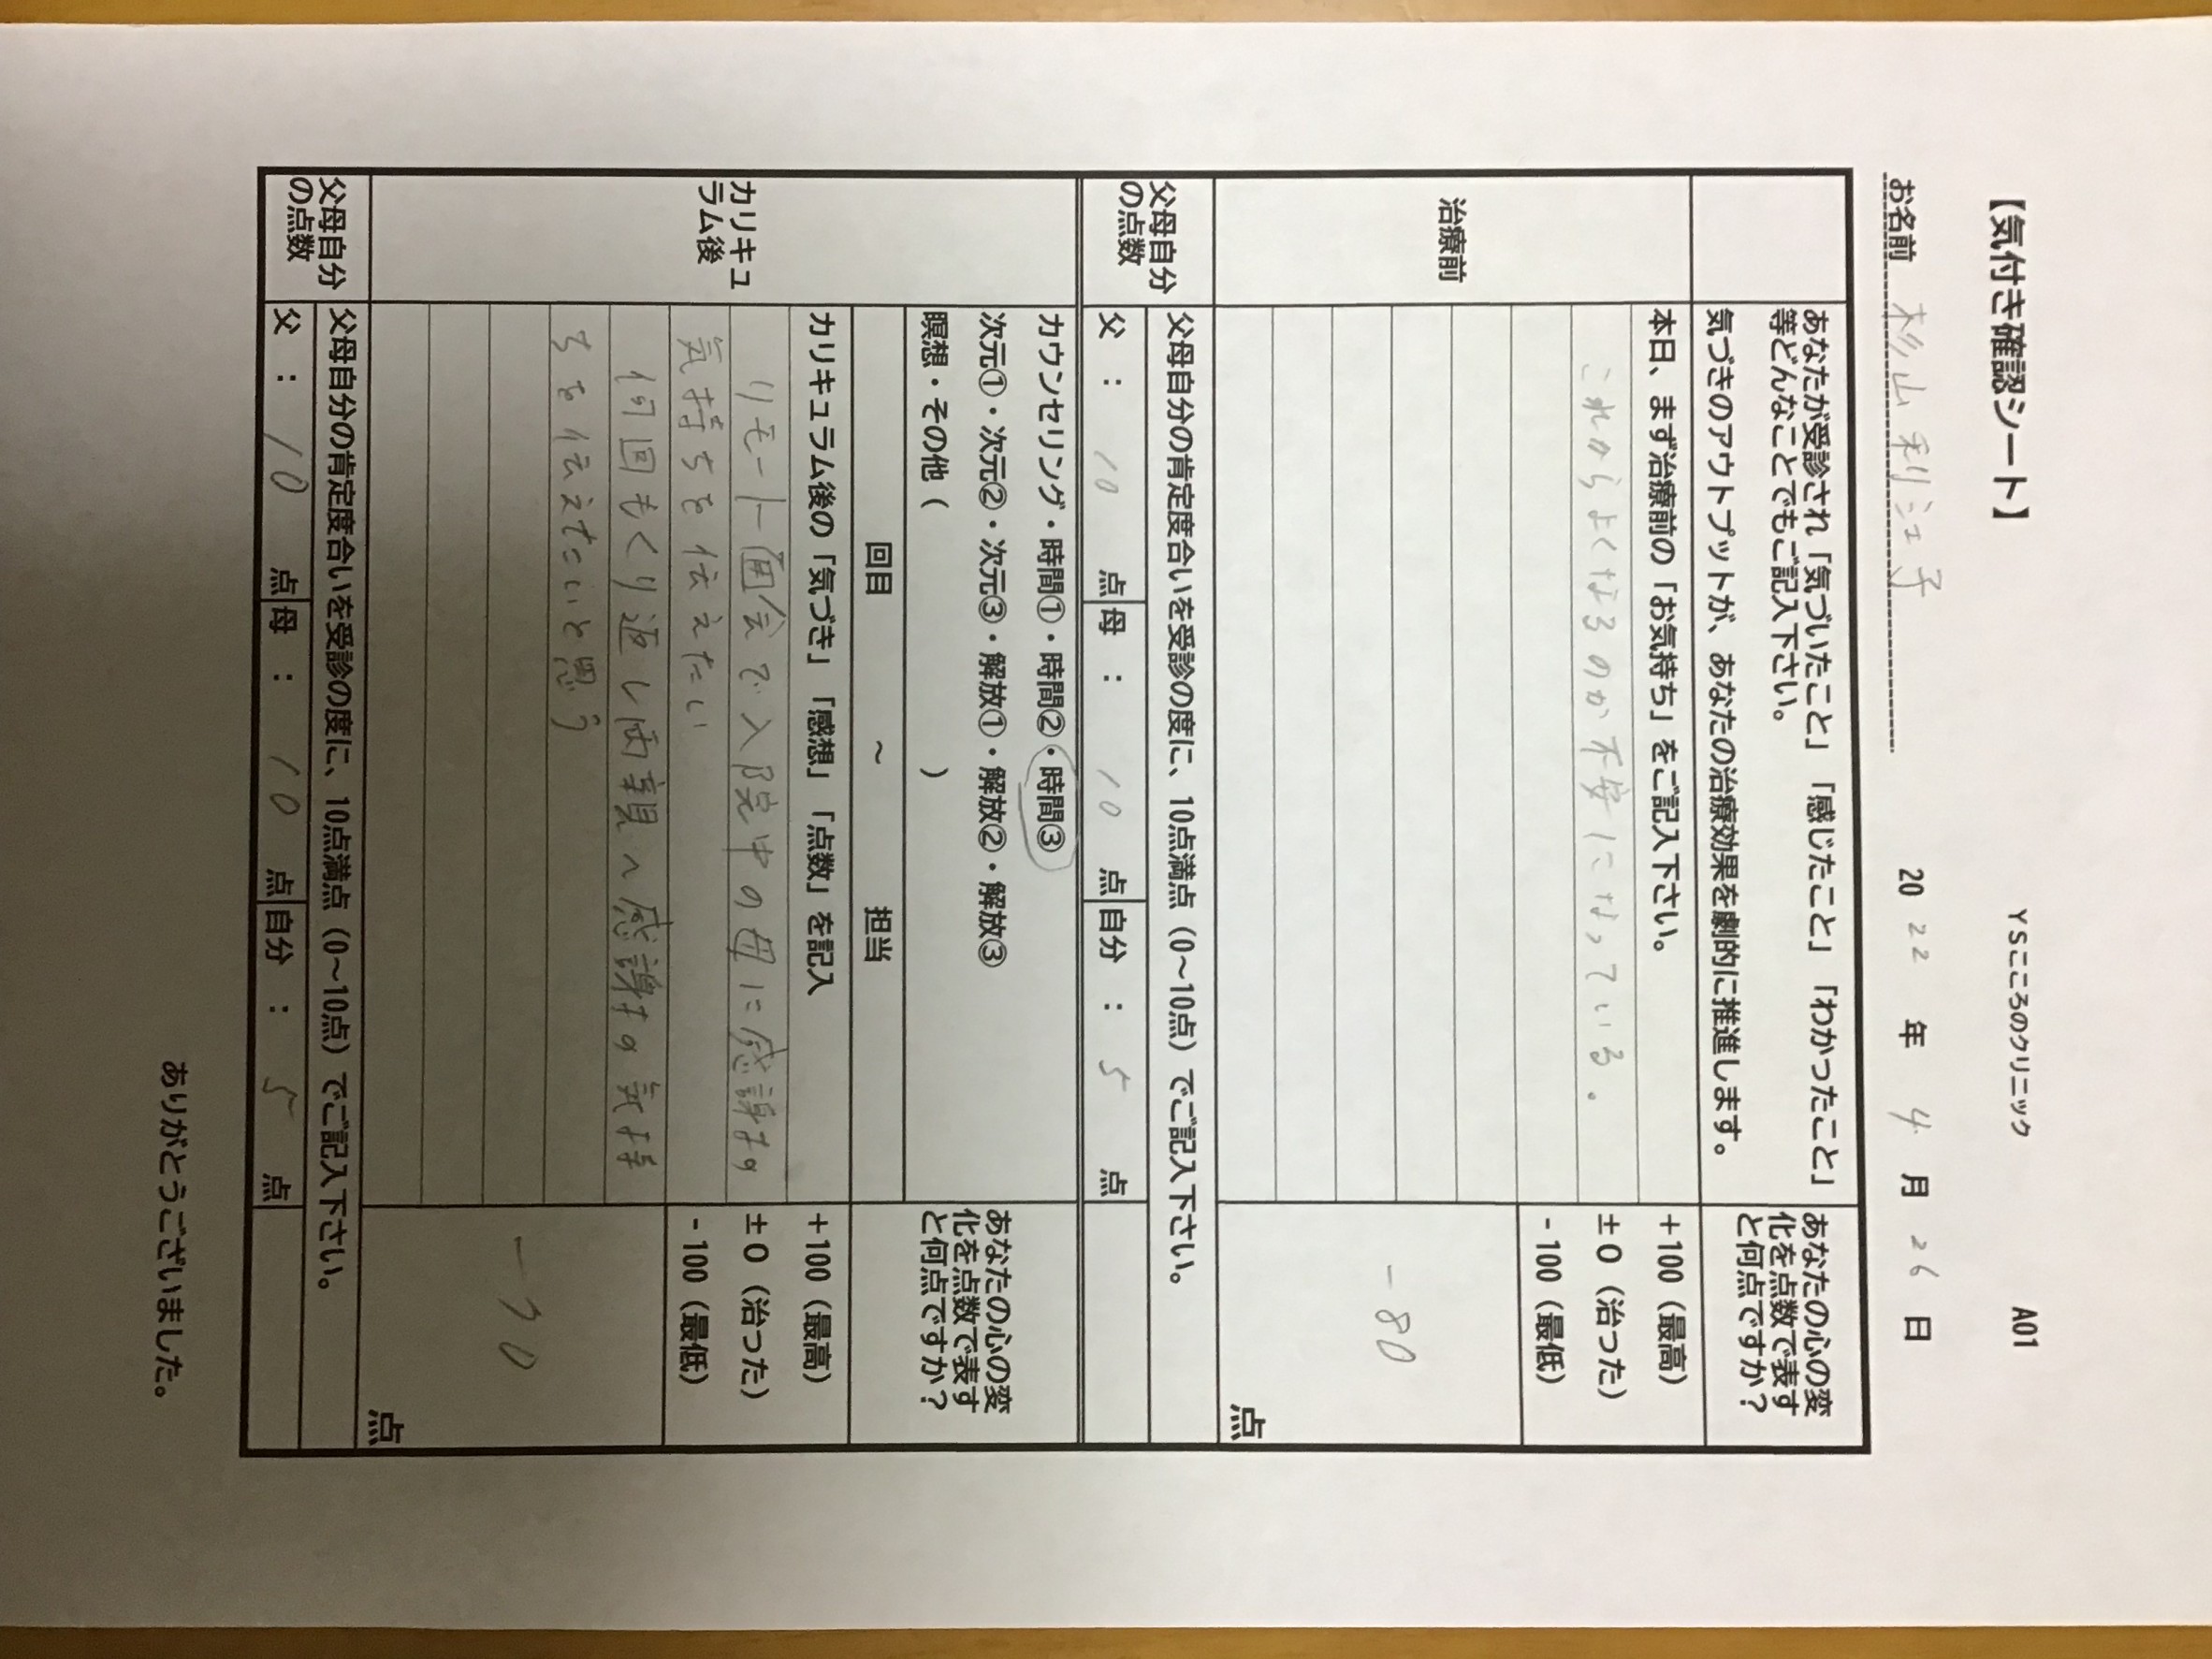 【気付き確認シート】 YSこころのクリニック A01
お名前 杉山利江子 2022年4月26日
あなたが受診され「気づいたこと」「感じたこと」「わかったこと」
等どんなことでもご記入下さい。
気づきのアウトプットが、あなたの治療効果を劇的に推進します。
あなたの心の変
化を点数で表す
と何点ですか?
治療前
本日、まず治療前の「お気持ち」をご記入下さい。
これからよくなるのか不安になっている.
+100(最高)
±0(治った)
-100(最低)
-80
点
父母自分
の点数
父母自分の肯定度合いを受診の度に、10点満点(0~10点)でご記入下さい。
父:10点 母:10点 自分:5点
カリキュ
ラム後
カウンセリング・時間①・時間②・時間③
次元①・次元②・次元③・解放①・解放②・解放③
瞑想・その他( )
回目 ~ 担当
あなたの心の変
化を点数で表す
と何点ですか?
カリキュラム後の「気づき」「感想」「点数」を記入
リモート面会で入院中の母に感謝すの
気持ちを伝えたい
何回もくり返し両親へ感謝すの気持
ちを伝えたいと思う
+100(最高)
±0(治った)
-100(最低)
-70
点
父母自分
の点数
父母自分の肯定度合いを受診の度に、10点満点(0~10点)でご記入下さい。
父:10点 母:10点 自分:5点
ありがとうございました。